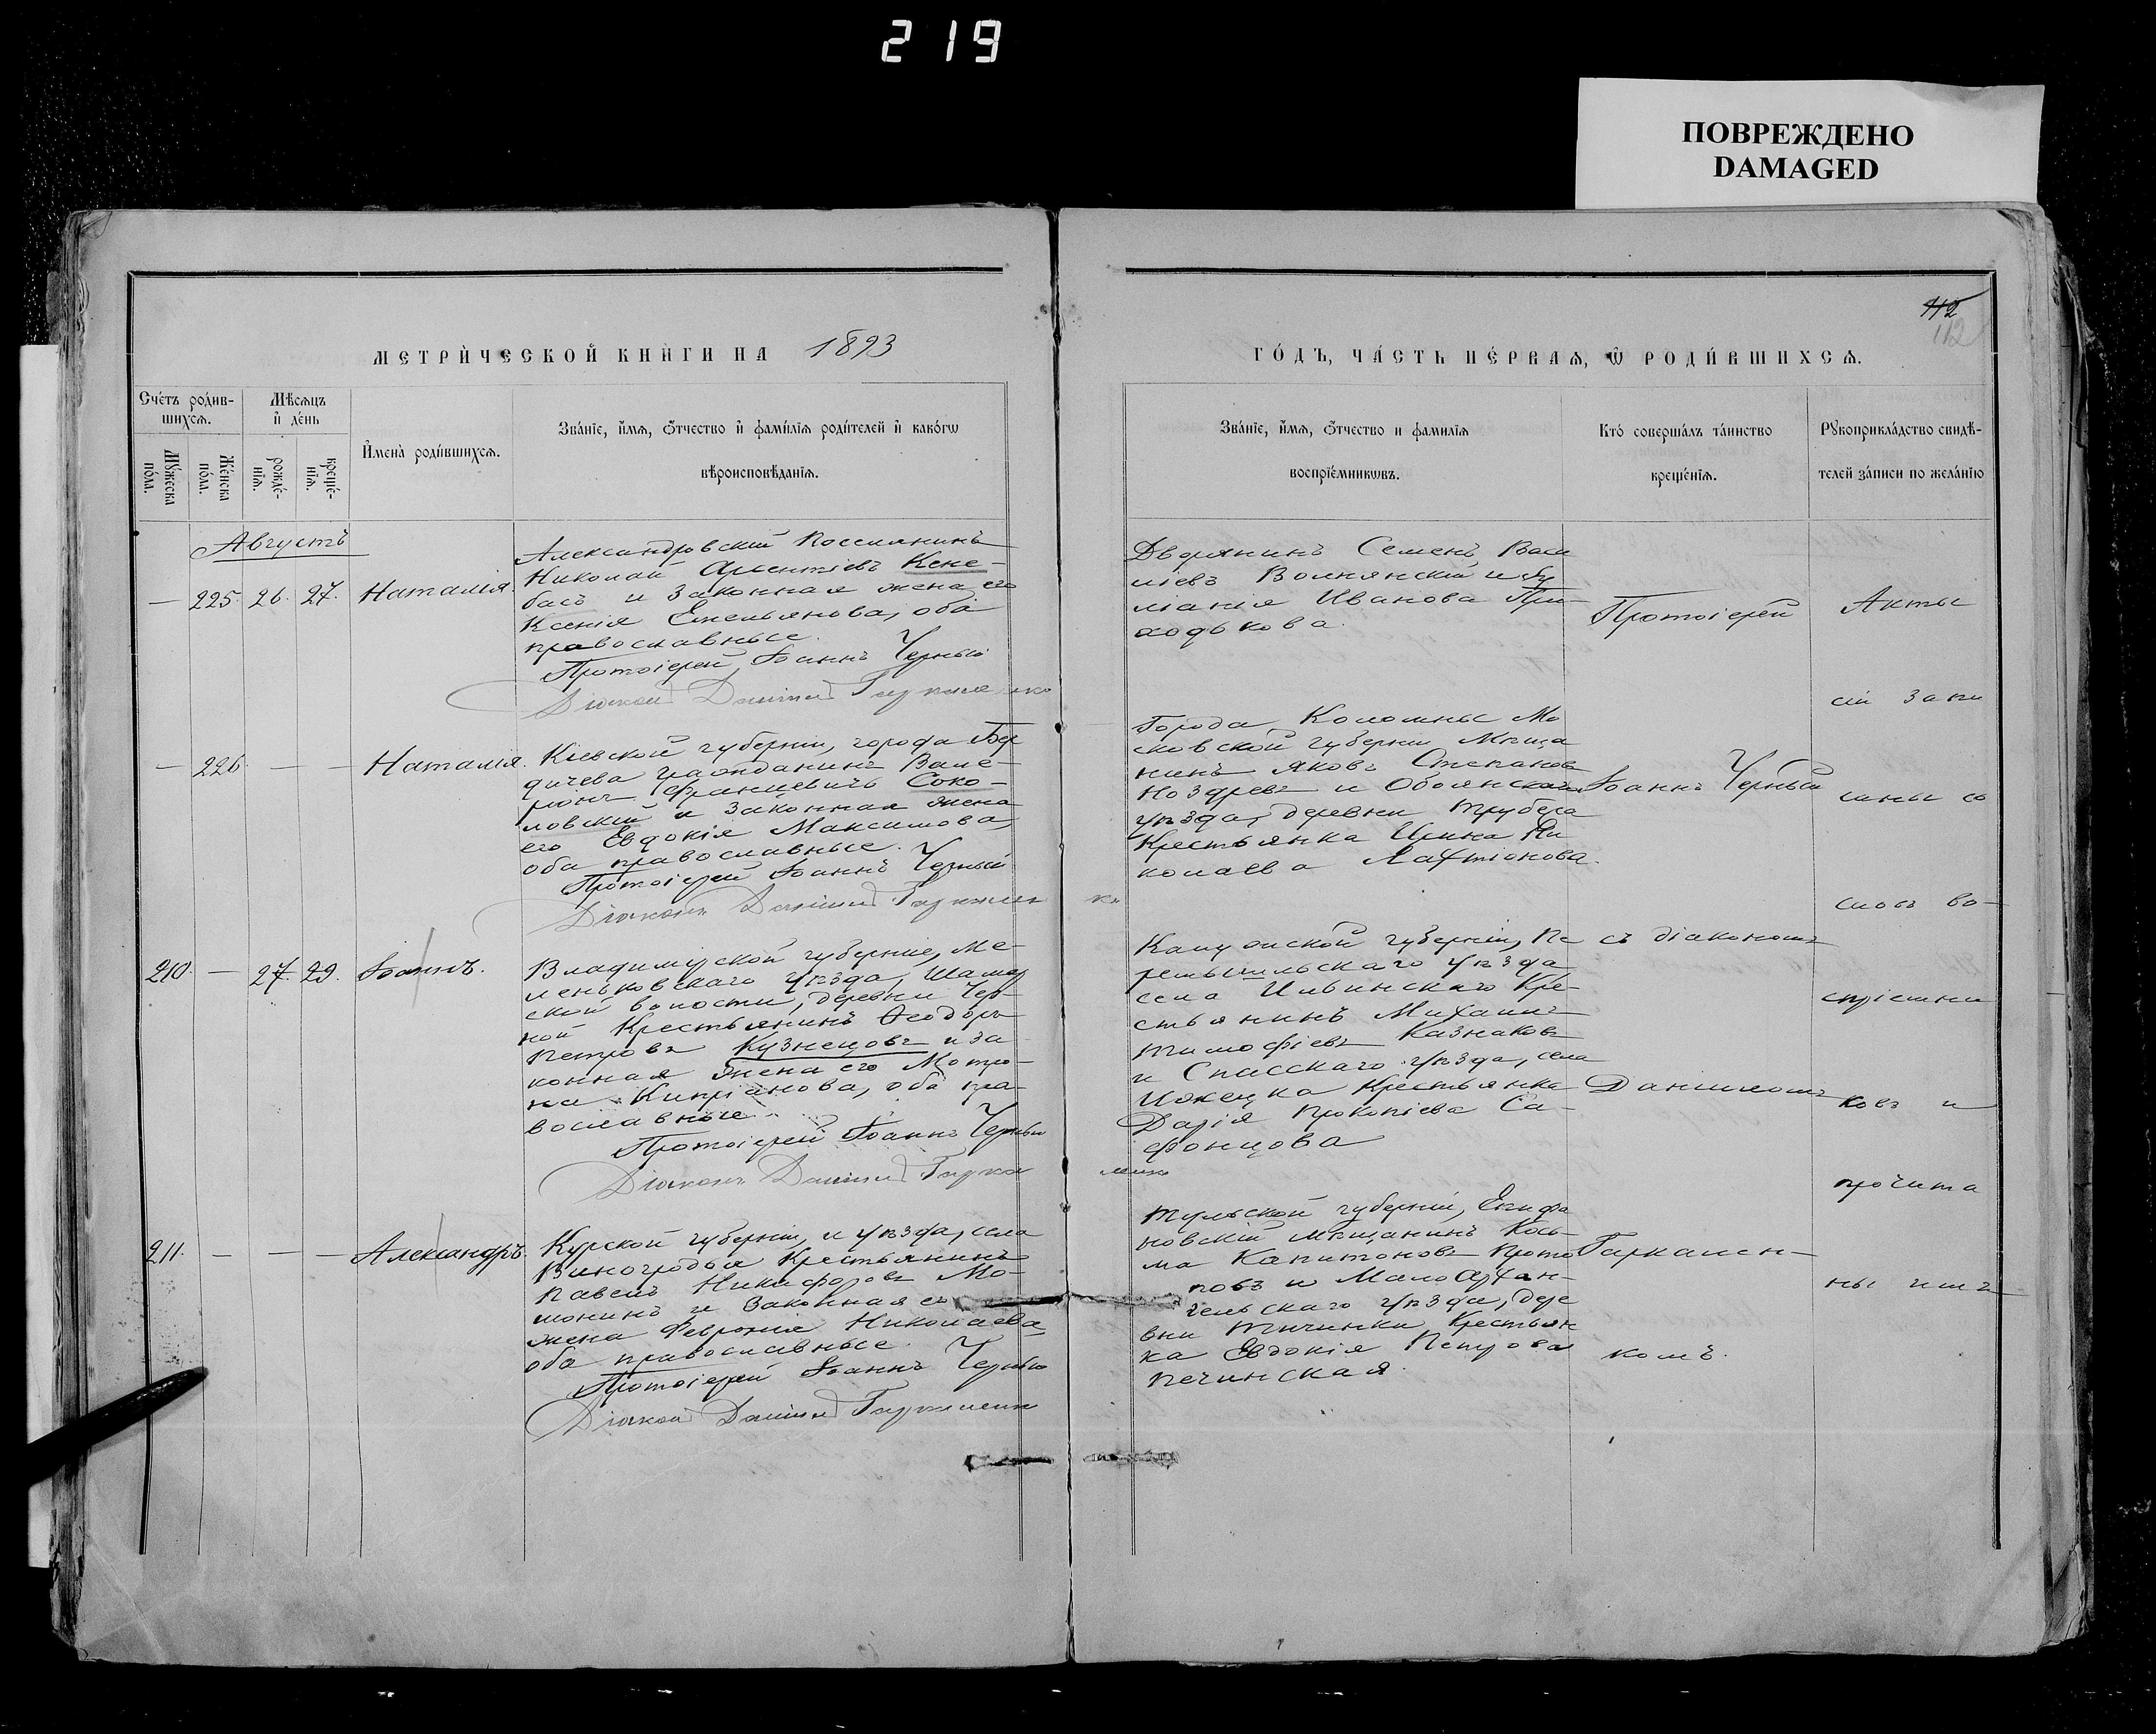 219
ПОВРЕЖДЕНО
DAMAGED
112
112
МЕТРИЧЕСКОЙ КНИГИ НА 1893
ГОДЪ, ЧАСТЬ ПЕРВАЯ, Ѡ РОДИВШИХСЯ.
Счетъ родив-
шихся.
Мѣсяцъ
и день
Мужеска
пола.
Женска
пола.
рожде-
нія.
креще-
нія.
Имена родившихся.
Званіе, имя, отчество и фамилія родителей и какогѡ
вѣроисповѣданія.
Званіе, имя, отчество и фамилія
воспріемникѡвъ.
Кто совершалъ таинство
крещенія.
Рукоприкладство свидѣ-
телей записи по желанію
Августъ
— 225. 26. 27. Наталія.
Александровскій
Николай Арсентіевъ Кене-
басъ и законная жена его
Ксенія Емельянова, оба
православные.
Протоіерей Іоаннъ Черный
Діаконъ Даниилъ
Дворянинъ Семенъ Васи
ліевъ Волнянскій и
ліанія Иванова При-
ходькова.
— 226. — — Наталія.
Кіевской губерніи, города Бер
дичева гражданинъ Вале-
ріанъ Францевичъ Соко-
ловскій и законная жена
его Евдокія Максимова,
оба православные.
Протоіерей Іоаннъ Черный
Діаконъ Даниилъ Гаркален
ко
Города Коломны Мо
сковской губерніи Мѣща
нинъ Яковъ Степановъ
Ноздревъ и Обоянскаго
уѣзда, деревни Трубежа
Крестьянка Ирина Ни
колаева Лахтіонова.
210. — 27. 29. Іоаннъ.
Владимірской губерніи, Ме-
ленковскаго уѣзда,
ской волости, деревни Чер-
ной Крестьянинъ Ѳеодоръ
Петровъ Кузнецовъ и за
конная жена его Матро-
на Кипріанова, оба пра-
вославные
Протоіерей Іоаннъ Черный
Діаконъ Даниилъ Гаркa
ленко
Калужской губерніи, Пе
ремышльскаго уѣзда
села Ильинскаго Кре-
стьянинъ Михаилъ
Тимофіевъ Казнаковъ
и Спасскаго уѣзда, села
Ижевска Крестьянка
Дарія Прокопіева Са-
фонцова
211. — — — Александръ.
Курской губерніи, и уѣзда, села
Виногробля Крестьянинъ
Павелъ Никифоровъ Мо-
монинъ и законная его
жена Феврония Николаева
оба православные.
Протоіерей Іоаннъ Черный
Діаконъ Даниилъ Гаркаленко
Тульской губерніи, Епифа
новскій Мѣщанинъ Козь-
ма Капитоновъ Прото
повъ и Малоархан-
гельскаго уѣзда, дере
вни Тичинки Крестьян
ка Евдокія Петрова
Печинская.
Протоіерей
Іоаннъ Черный
съ діакономъ
Данииломъ
Гаркален-
комъ.
Акты
сіи запи
саны со
словъ во-
спріемни
ковъ и
прочита
ны имъ